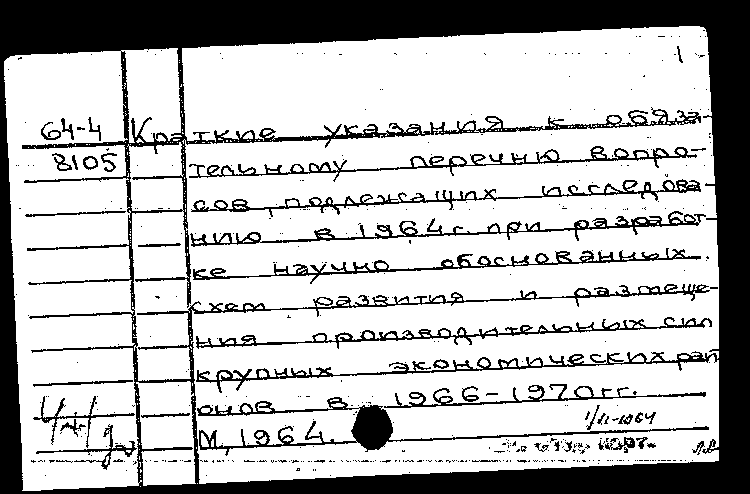 1
64-4 Краткие указания к обяза-
8105 тельному перечню вопро-
сов, подлежащих исследова-
нию в 1964г. при разработ-
ке научно обоснованных
схем развития и размеще-
ния производительных сил
крупных экономических рай
онов в 1966-1970гг.
М, 1964.